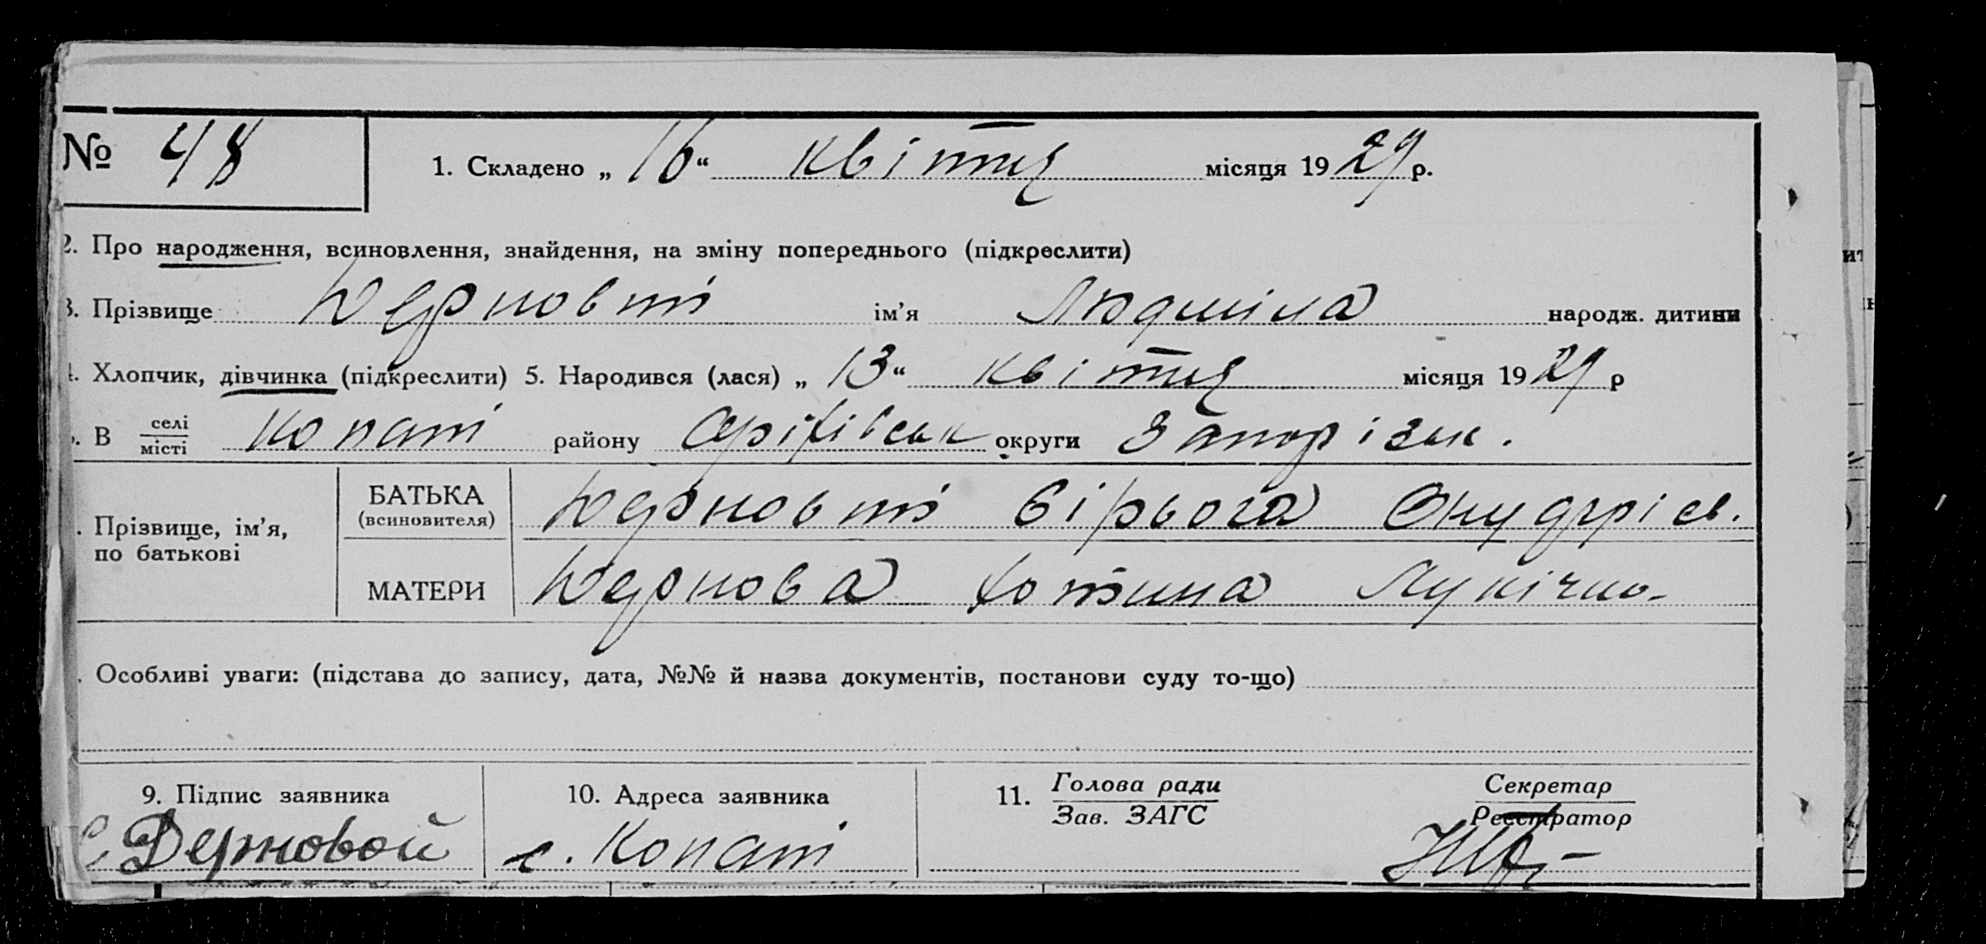 № 48 1. Складено „ 16 “ квітня місяця 19 29 р.
2. Про народження, всиновлення, знайдення, на зміну попереднього (підкреслити)
3. Прізвище ім’я Людміла народж. дитини
4. Хлопчик, дівчинка (підкреслити) 5. Народився (лася) „ 13 “ квітня місяця 19 29 р
В селі
місті Копані району Оріхівськ округи Запорізьк.
Прізвище, ім’я,
по батькові
БАТЬКА
(всиновителя)
МАТЕРИ Лукічно-
Особливі уваги: (підстава до запису, дата, №№ й назва документів, постанови суду то-що)
9. Підпис заявника
Дерновой
10. Адреса заявника
с. Копані
11. Голова ради
Зав. ЗАГС
Секретар
Реєстратор